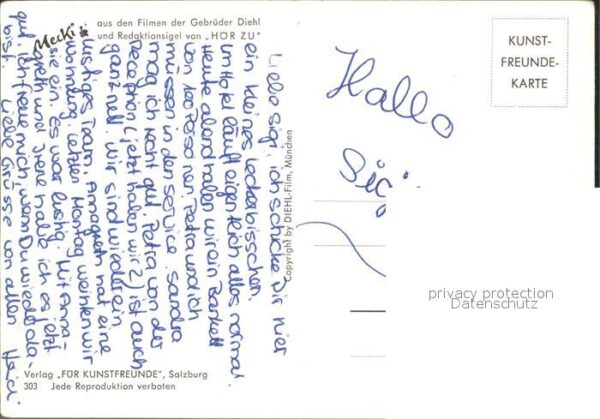 Mecki
aus den Filmen der Gebrüder Diehl
und Redaktionsigel von „HÖR ZU"
KUNST-
FREUNDE-
KARTE
Hallo
Sigi
Liebe Sigi, ich schicke Dir hier
ein kleines Leckerbisschen.
Im Hotel läuft eigentlich alles normal.
Heute abend haben wir ein Bankett
von 100 Personen. Petra und ich
müssen in den Service. Sandra
mag ich nicht gut. Petra von der
Reception (jetzt haben wir 2) ist auch
ganz nett. Wir sind wieder ein
lustiges Team. Annagreth hat eine
Wohnung. Letzten Montag weihten wir
sie ein. Es war lustig. Mit Anna-
greth und Irene habe ich es jetzt
gut. Ich freue mich, wenn Du wieder da
bist. Liebe Grüsse von allen
Heidi
Copyright by DIEHL-Film, München
Verlag „FÜR KUNSTFREUNDE", Salzburg
303 Jede Reproduktion verboten
privacy protection
Datenschutz